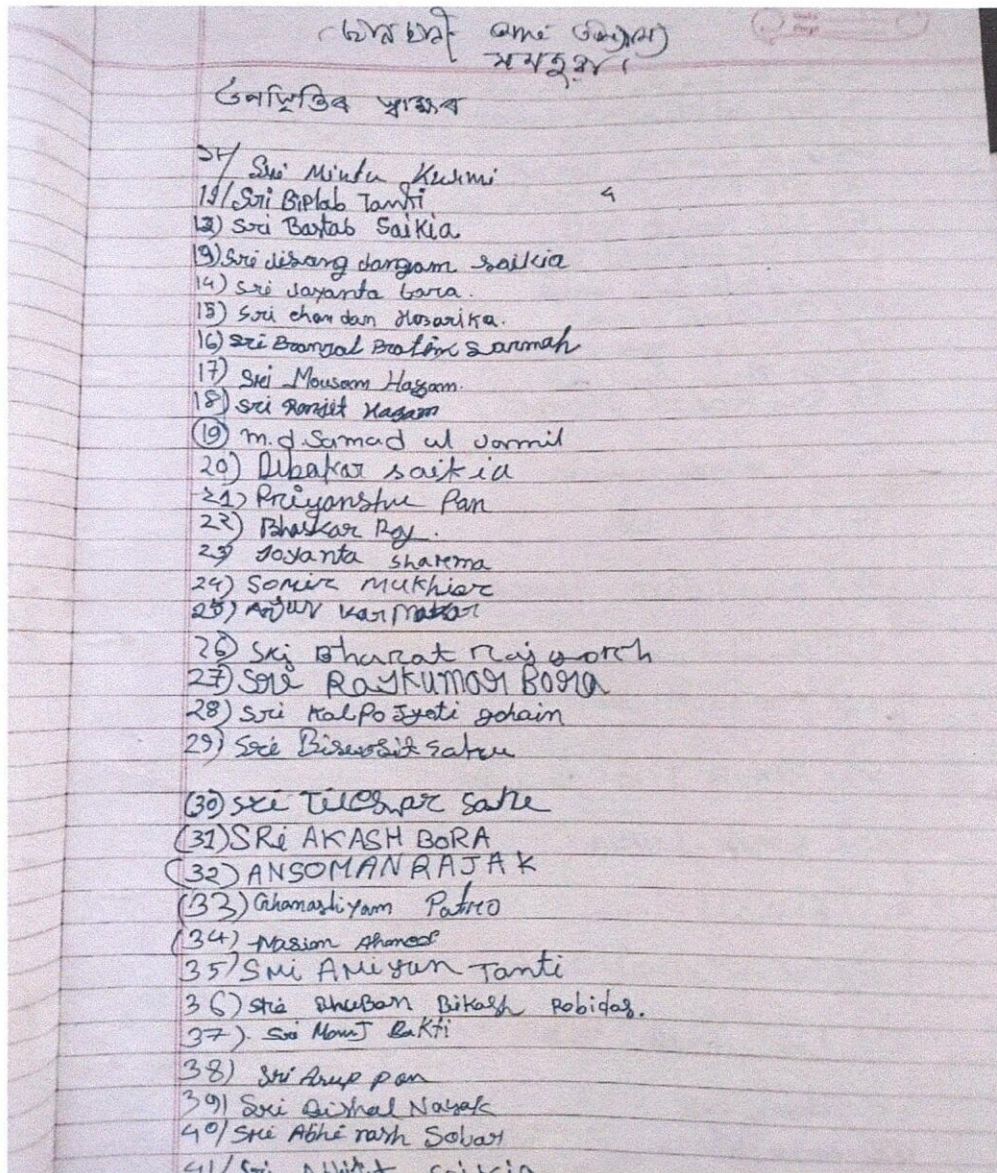 উপস্থিতিৰ স্বাক্ষৰ
Sri Mintu Kurmi
11/ Sri Biplab Tanti
12) Sri Bastab Saikia
13) Sri disang dangam saikia
14) Sri Jayanta bara.
15) Sri chandan Hosarika.
16) Sri Pranjal Pratim Sarmah
17) Sri Mousam Hazam.
18) Sri Ranjit Hazam
19) M.d. Samad ul Jamil
20) Dibakar saikia
21) Priyanshu Pan
22) Bhaskar Roy.
23) Joyanta sharma
24) Somir Mukhiar
25) Arjun Karmakar
26) Sri Bharat Raj
27) Sri Rajkumar Bora
28) Sri Kalpo Jyoti gohain
29) Sri Biswosit Sahu
(30) Sri Tileshwar Sahu
(31) SRi AKASH BORA
(32) ANSOMAN RAJAK
(33) Ghanashyam Patro
(34) Nasim Ahmed
35) Sri Ariyan Tanti
36) Sri Bhuban Bikash Robidas.
37). Sri Manoj Bakti
38) Sri Arup pan
39) Sri Bishal Nayak
40/ Sri Abhinash Sobar
41/ Sri Abhijit Saikia